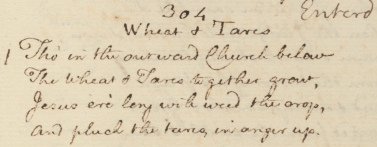 304 Enterd
Wheat & Tares
1 Tho in the outward Church below
The Wheat & Tares together grow,
Jesus ere long will weed the crop,
And pluck the tares, in anger up.